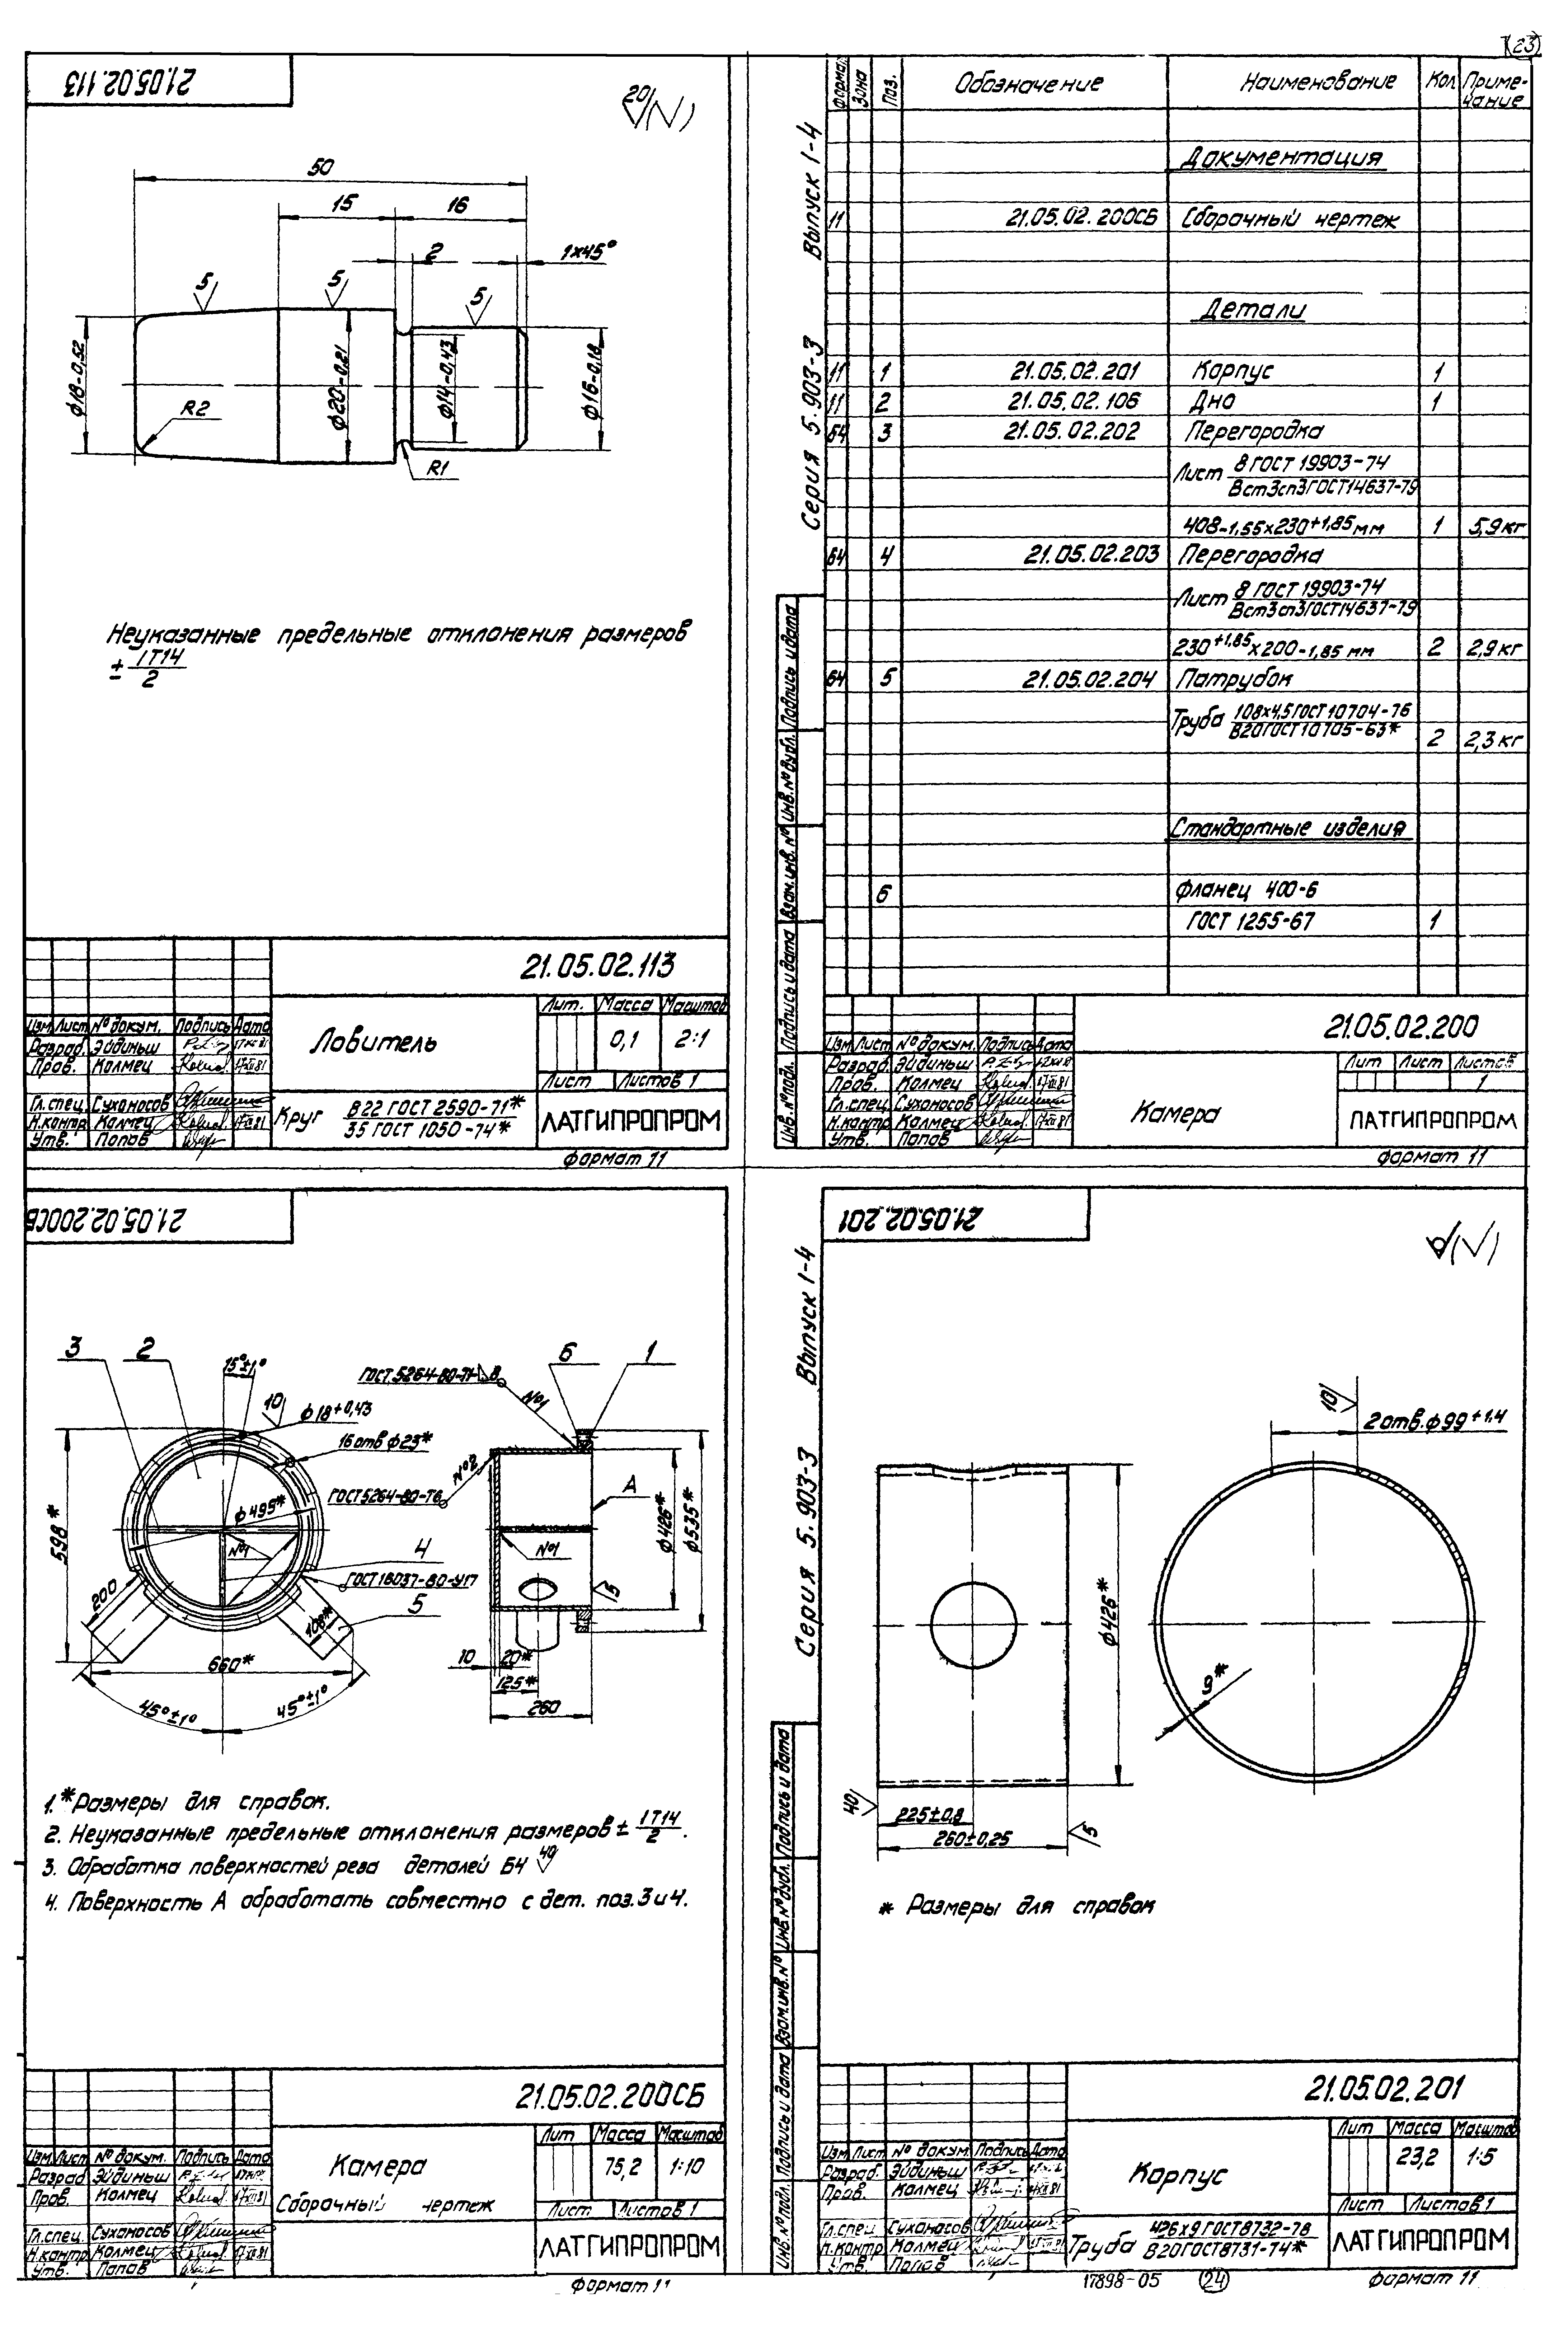 (23)
21.05.02.113
20 (√)
50
15
16
2
1×45°
5
5
5
ϕ18-0,52
ϕ20-0,21
ϕ14-0,43
ϕ16-0,18
R2
R1
Неуказанные предельные отклонения размеров
± IT14/2
21.05.02.113
Лит. Масса Масштаб
0,1 2:1
Изм. Лист № докум. Подпись Дата
Разраб. Эйдиньш
Пров. Колмец
Гл.спец. Сухоносов
Н.контр. Колмец
Утв. Попов
Ловитель
Лист Листов 1
Круг В22 ГОСТ 2590-71*
35 ГОСТ 1050-74*
ЛАТГИПРОПРОМ
формат 11
Серия 5.903-3 Выпуск 1-4
Формат Зона Поз. Обозначение Наименование Кол Примечание
Документация
11 21.05.02.200СБ Сборочный чертеж
Детали
11 1 21.05.02.201 Корпус 1
11 2 21.05.02.106 Дно 1
БЧ 3 21.05.02.202 Перегородка
Лист 8 ГОСТ 19903-74
Вст3сп3ГОСТ14637-79
408-1,55×230+1,85 мм 1 5,9 кг
БЧ 4 21.05.02.203 Перегородка
Лист 8 ГОСТ 19903-74
Вст3сп3ГОСТ14637-79
230+1,85×200-1,85 мм 2 2,9 кг
БЧ 5 21.05.02.204 Патрубок
Труба 108×4,5 ГОСТ 10704-76
В20ГОСТ10705-63*
2 2,3 кг
Стандартные изделия
6 Фланец 400-6
ГОСТ 1255-67 1
Инв.№подл. Подпись и дата Взам.инв.№ Инв.№дубл. Подпись и дата
21.05.02.200
Изм Лист № докум. Подпись Дата
Разраб. Эйдиньш
Пров. Колмец
Гл.спец. Сухоносов
Н.контр. Колмец
Утв. Попов
Камера
Лит Лист Листов
1
ЛАТГИПРОПРОМ
формат 11
21.05.02.200СБ
3
2
15°±1°
10
ϕ18+0,43
16 отв ϕ23*
ГОСТ 5264-80-Т1-8
№1
6
1
№2
ГОСТ 5264-80-Т6
ϕ495*
№1
4
598*
200
ГОСТ 16037-80-У17
5
108*
660*
45°±1°
45°±1°
А
ϕ426*
ϕ535*
№1
5
10
20*
125*
260
1.*Размеры для справок.
2. Неуказанные предельные отклонения размеров ± IT14/2.
3. Обработка поверхностей реза деталей БЧ 40
4. Поверхность А обработать совместно с дет. поз. 3 и 4.
21.05.02.200СБ
Изм. Лист № докум. Подпись Дата
Разраб. Эйдиньш
Пров. Колмец
Гл.спец. Сухоносов
Н.контр. Колмец
Утв. Попов
Камера
Сборочный чертеж
Лит Масса Масштаб
75,2 1:10
Лист Листов 1
ЛАТГИПРОПРОМ
формат 11
21.05.02.201
Серия 5.903-3 Выпуск 1-4
(√)
10
2 отв. ϕ99+1,4
ϕ426*
9*
40
225±0,8
260±0,25
5
* Размеры для справок
Инв.№подл. Подпись и дата Взам.инв.№ Инв.№дубл. Подпись и дата
21.05.02.201
Изм Лист № докум. Подпись Дата
Разраб. Эйдиньш
Пров. Колмец
Гл.спец Сухоносов
Н.контр Колмец
Утв. Попов
Корпус
Лит Масса Масштаб
23,2 1:5
Лист Листов 1
Труба 426×9 ГОСТ8732-78
В20ГОСТ8731-74*
ЛАТГИПРОПРОМ
17898-05 (24) формат 11